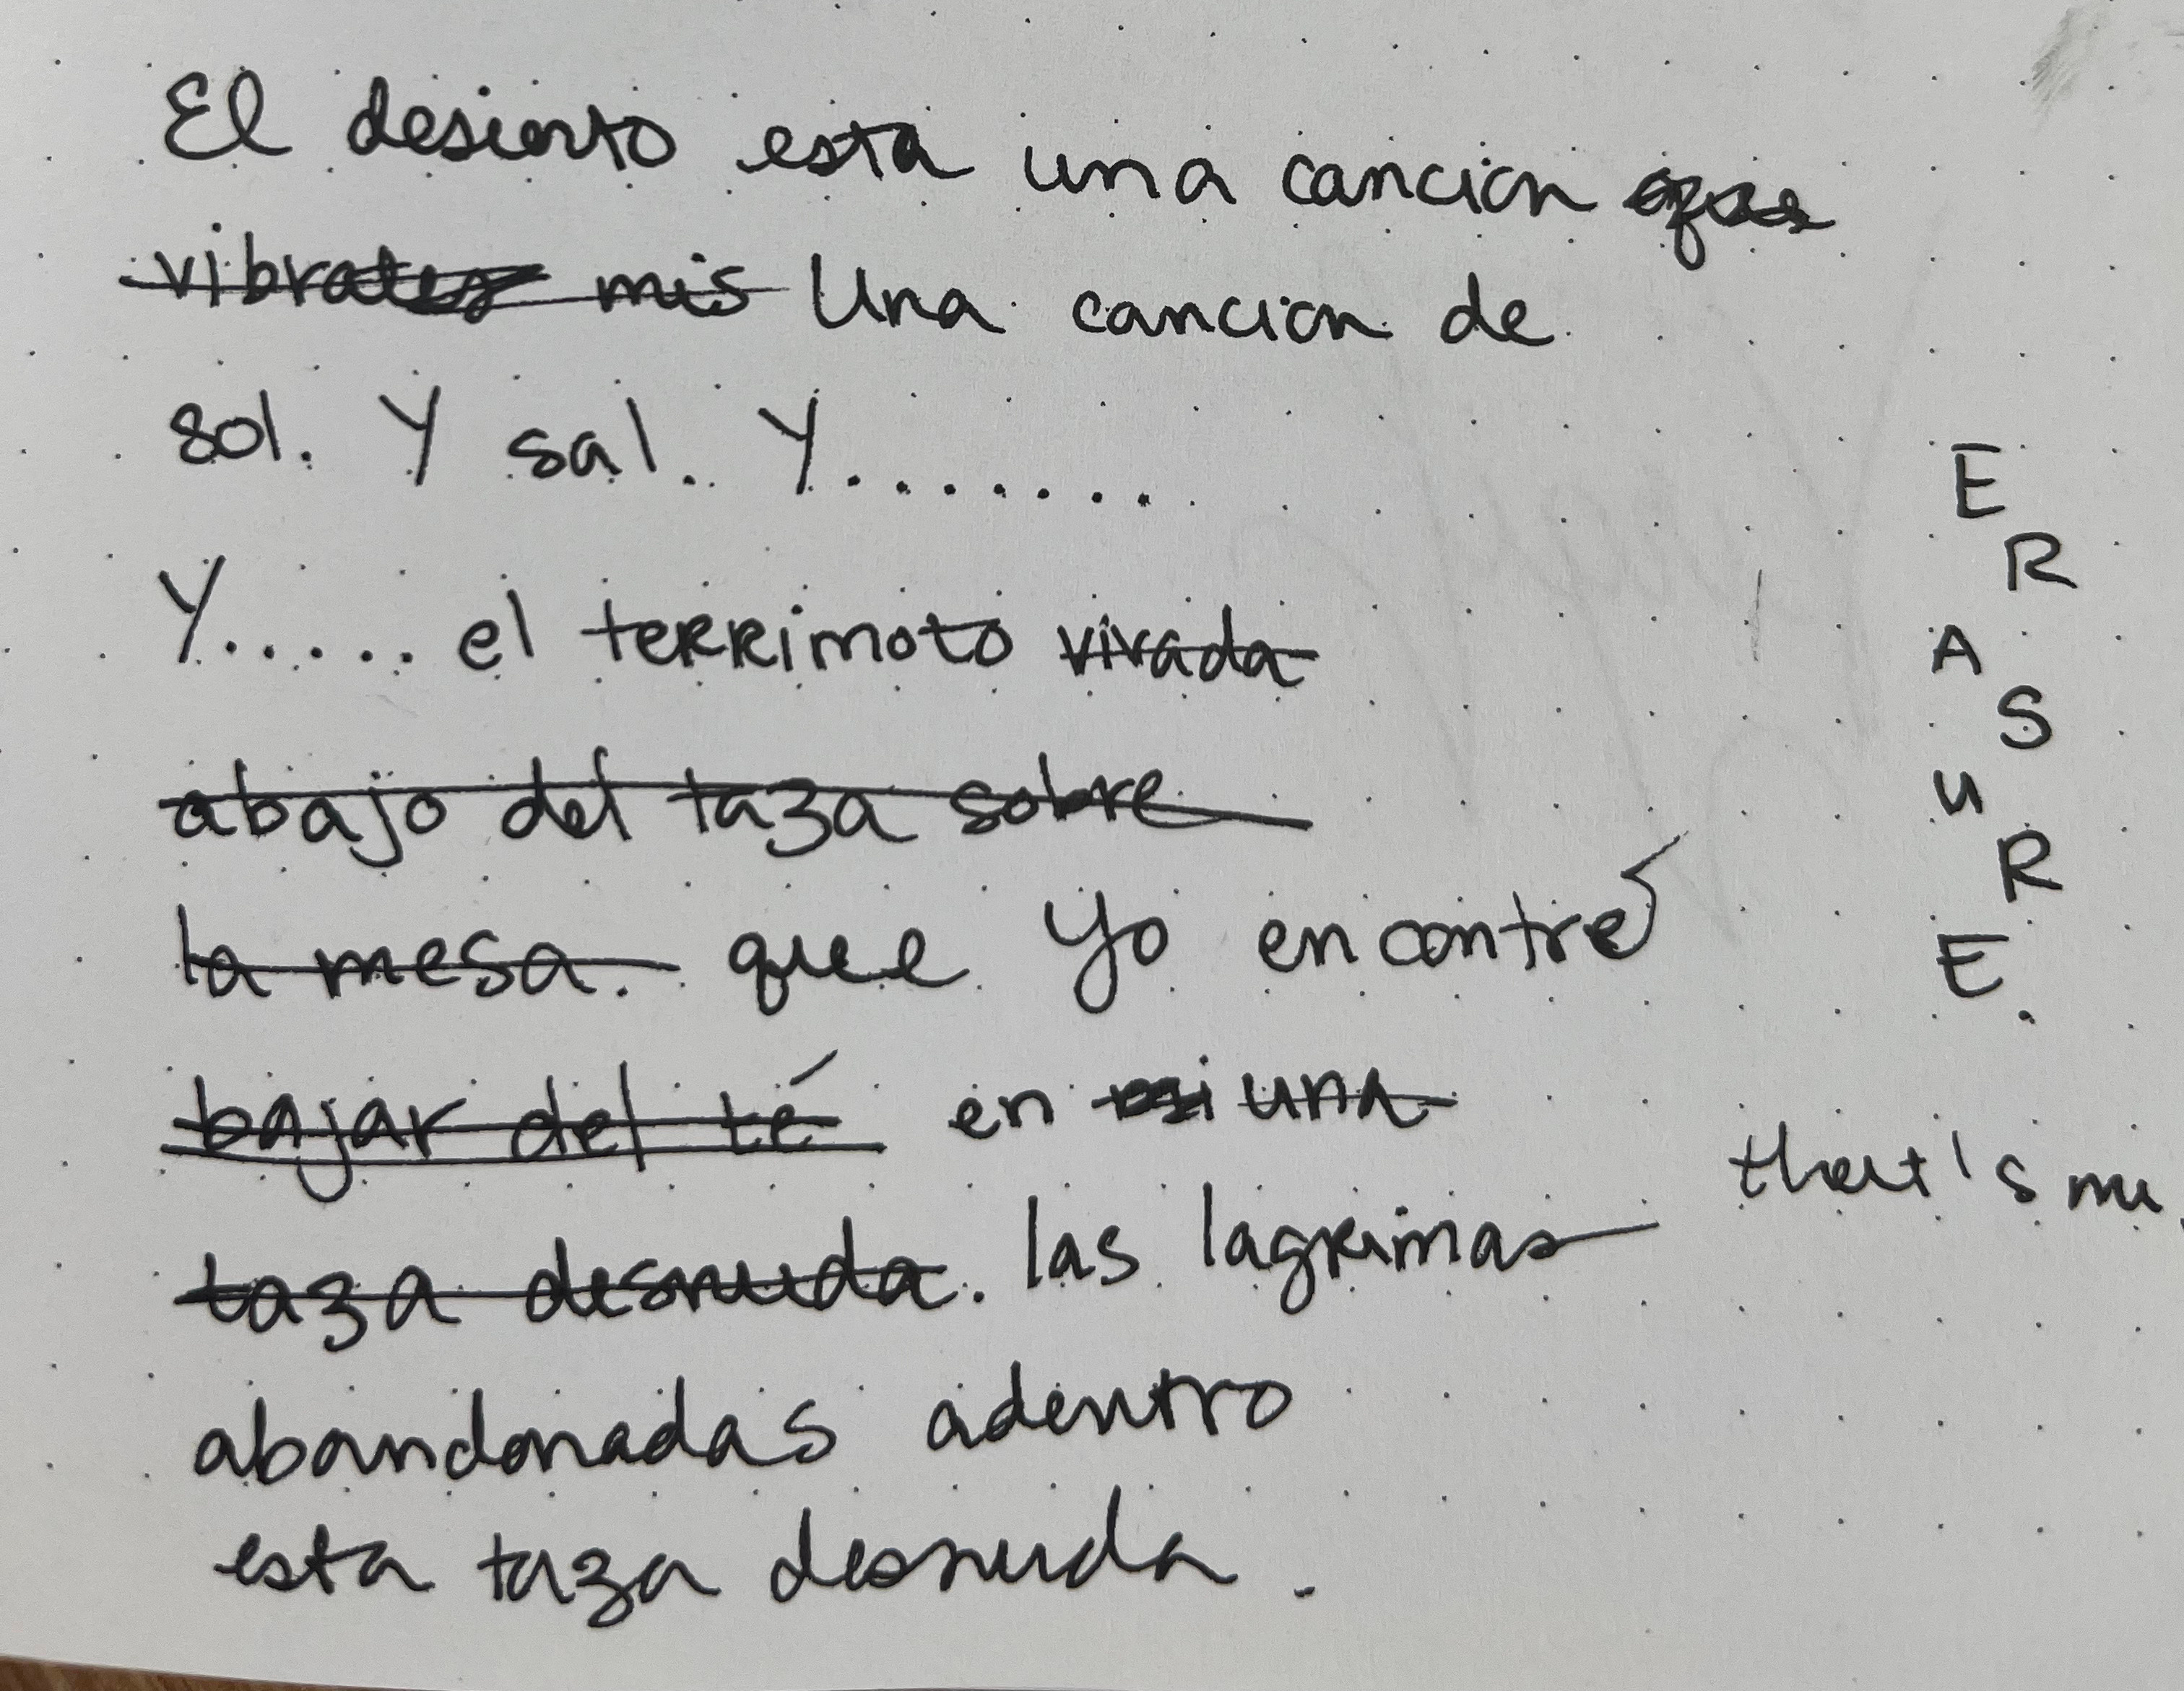 El desierto esta una cancion que
vibrates mis Una cancion de
sol. Y sal. Y.........
Y...... el terrimoto vivada
abajo del taza sobre
la mesa. que yo encontré
bajar del té en mi una
taza desnuda. las lagrimas
abandonadas adentro
esta taza desnuda.
E
R
A
S
U
R
E.
that's me.